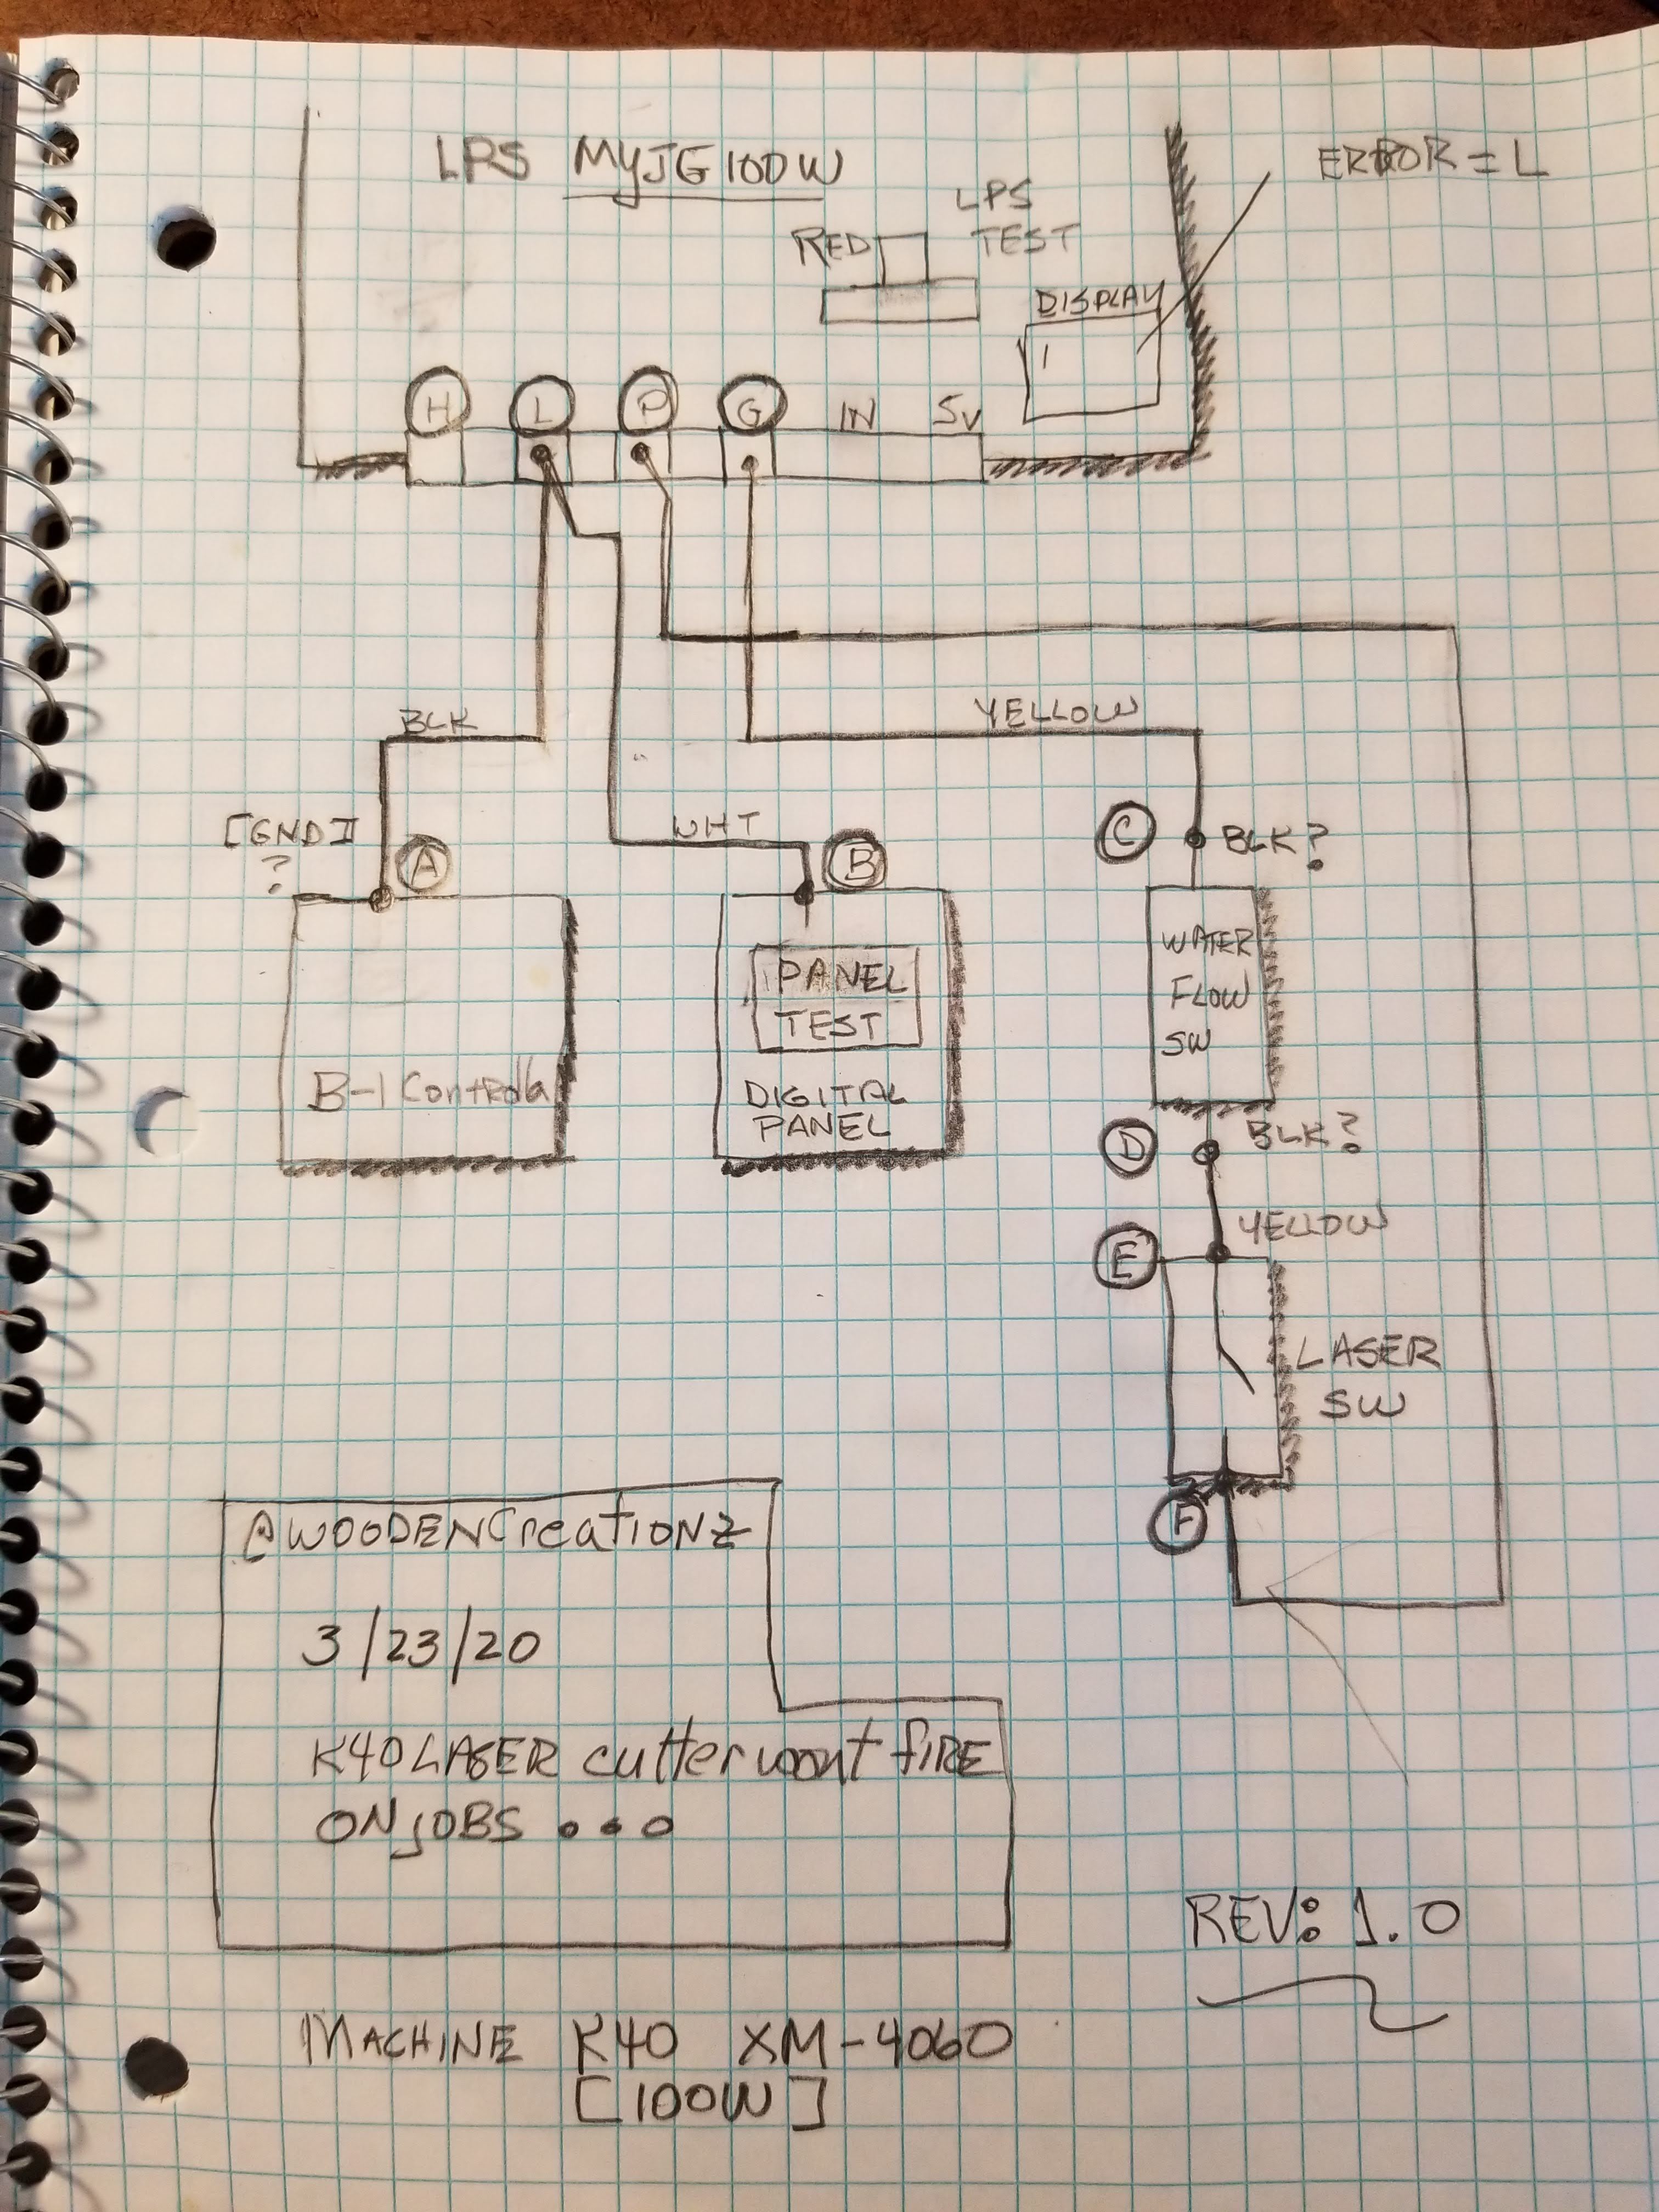 LPS MYJG100W
ERROR = L
LPS
TEST
RED
DISPLAY
H L P G IN 5V
BLK
YELLOW
[GND]
?
A
WHT
B
C
BLK?
PANEL
TEST
WATER
FLOW
SW
DIGITAL
PANEL
D
BLK?
YELLOW
E
LASER
SW
F
@WOODENCreationz
3/23/20
K40 LASER cutter wont fIRE
ON JOBS ...
REV: 1.0
MACHINE K40 XM-4060
[100W]